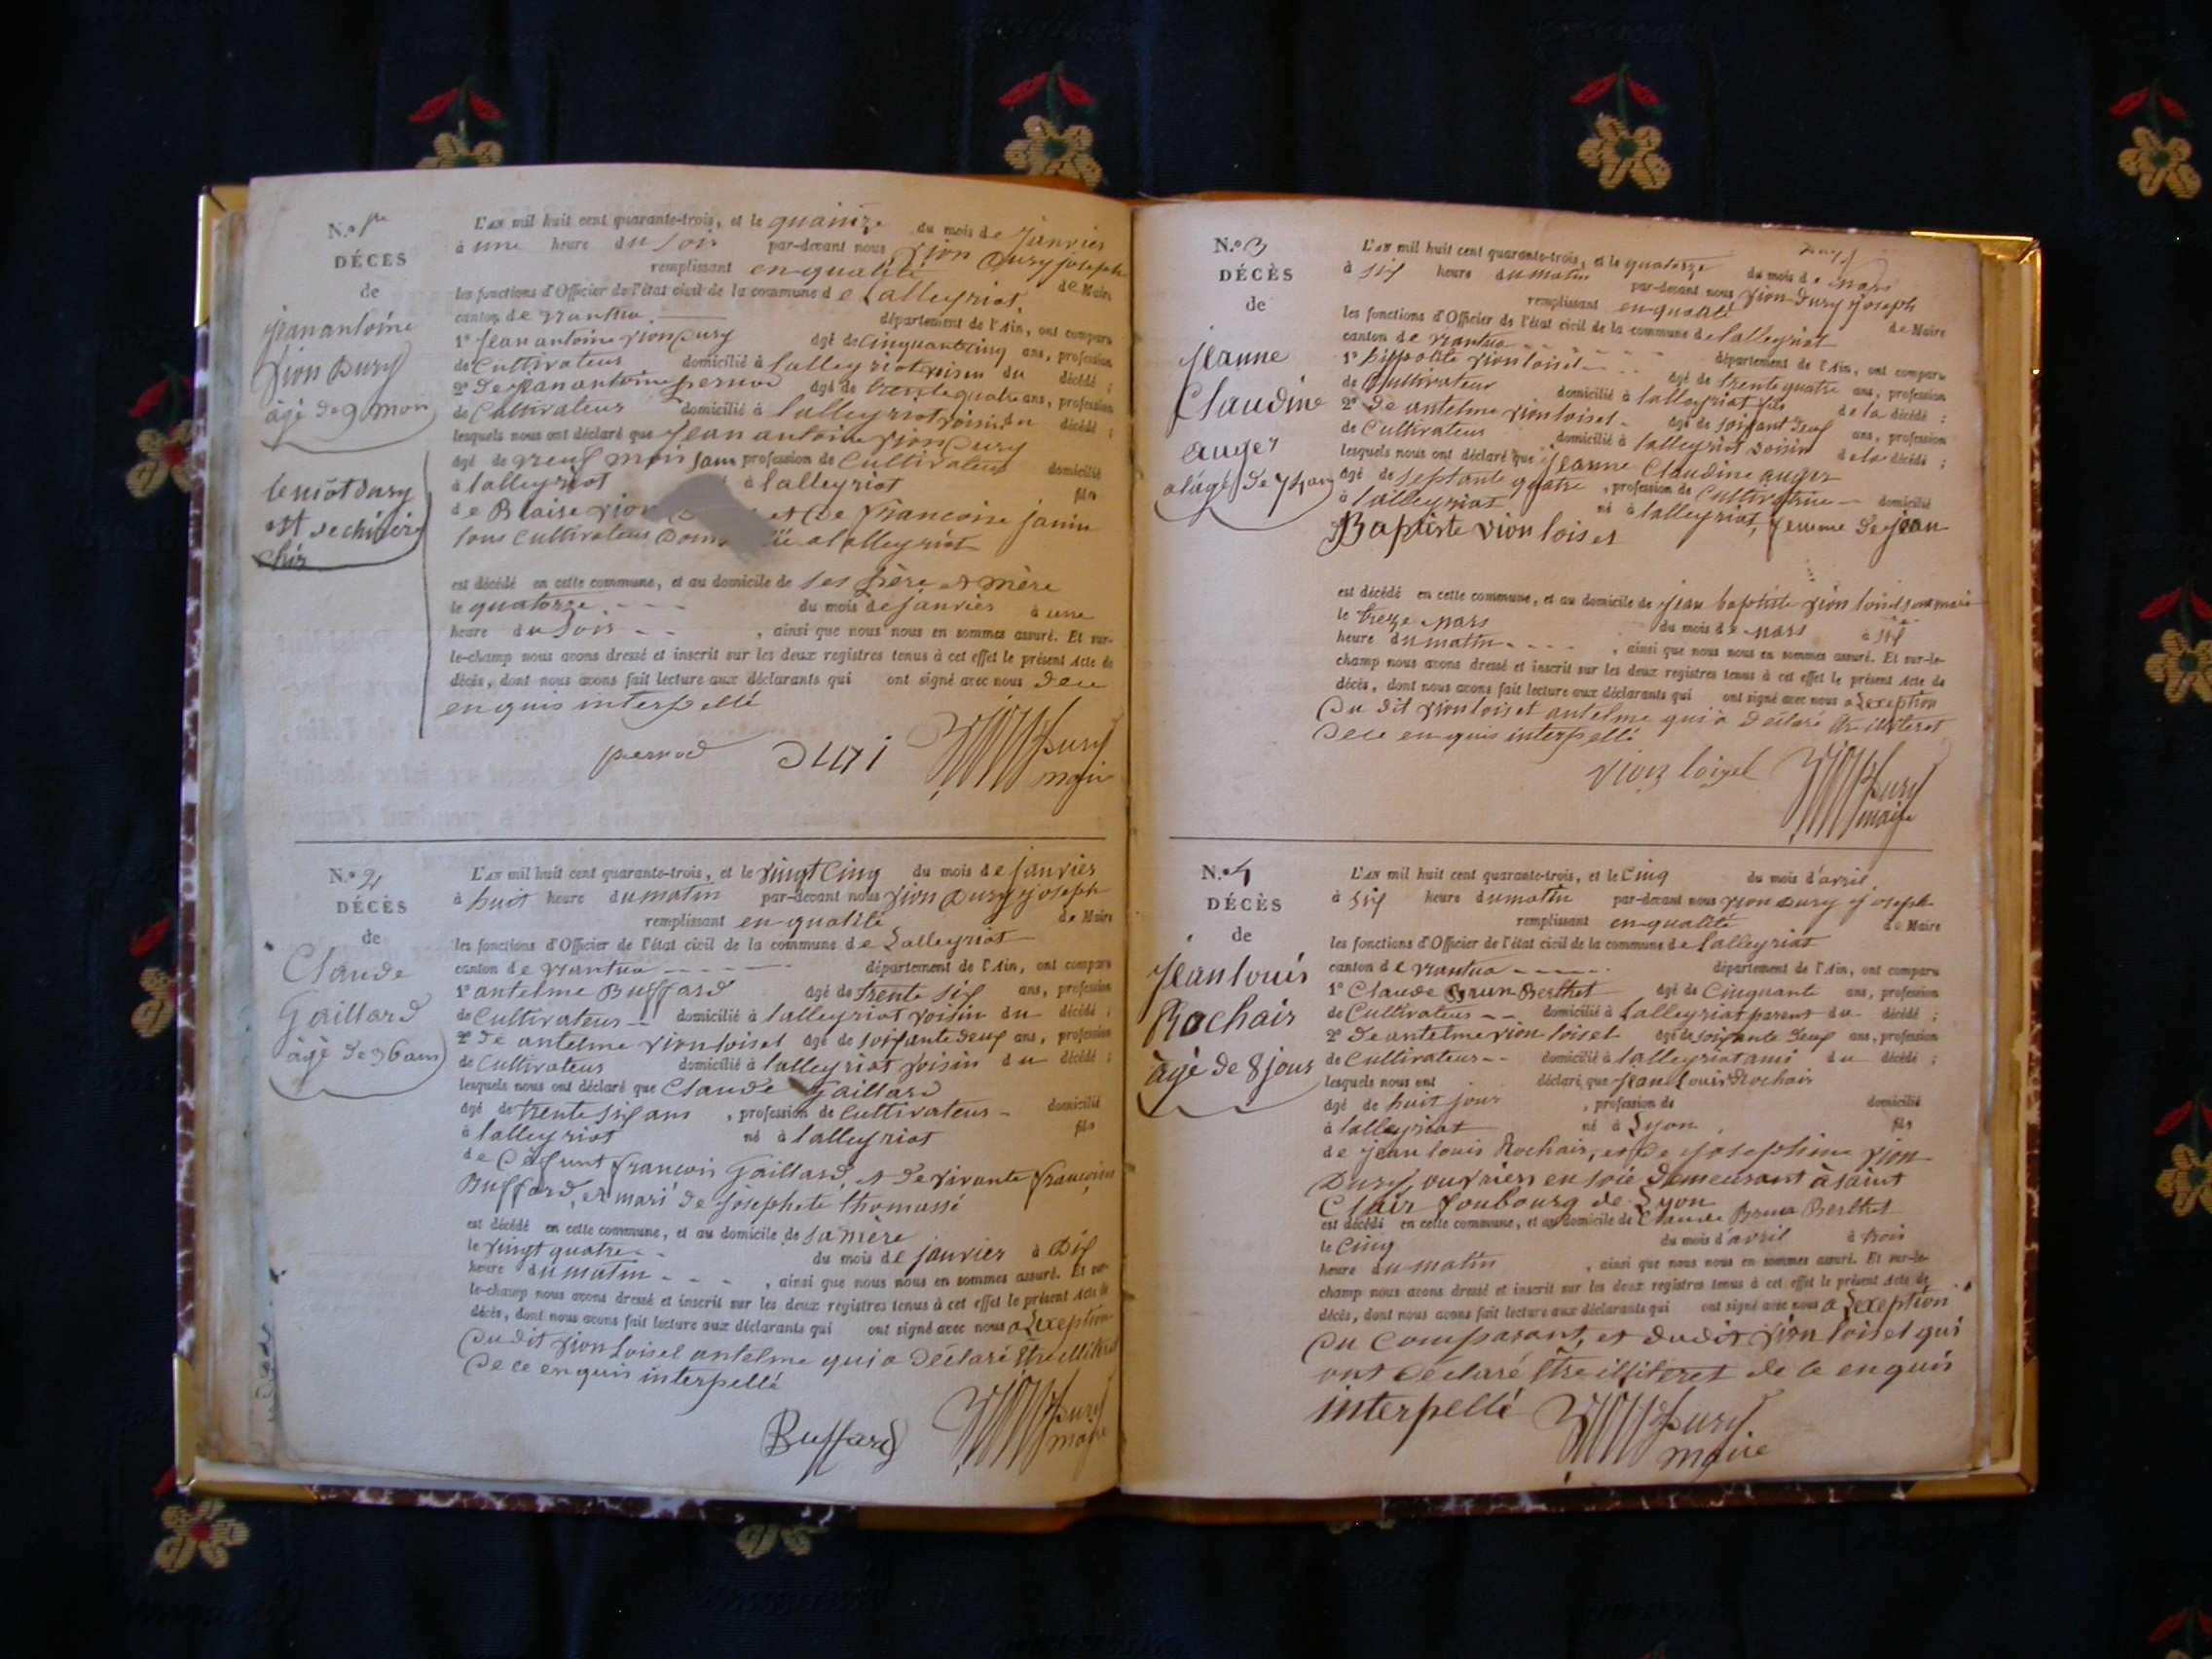 N.º 1re
DÉCÈS
de
jean antoine
Vion Dury
âgé de 9 mois
le mot dury
est
L'AN mil huit cent quarante-trois, et le quainze du mois de janvier
à une heure du soir par-devant nous Vion Dury joseph
remplissant en qualité de Maire
les fonctions d'Officier de l'état civil de la commune de Lalleyriat
canton de Nantua département de l'Ain, ont comparu
1º jean antoine Vion Dury âgé de cinquant cinq ans, profession
de Cultivateur domicilié à lalleyriat voisin du décédé ;
2º de jean antoine pernod âgé de trente quatre ans, profession
de Cultivateur domicilié à lalleyriat voisin du décédé ;
lesquels nous ont déclaré que jean antoine Vion Dury
âgé de neuf mois sans profession de Cultivateur domicilié
à lalleyriat à lalleyriat fils
de Blaise Vion et de francoise janin
tous cultivateur a lalleyriat
est décédé en cette commune, et au domicile de ses père et mère
le quatorze du mois de janvier à une
heure du soir , ainsi que nous nous en sommes assuré. Et sur-
le-champ nous avons dressé et inscrit sur les deux registres tenus à cet effet le présent Acte de
décès, dont nous avons fait lecture aux déclarants qui ont signé avec nous dece
enquis interpellé
pernod Duri Vion Dury
maire
N.º 2
DÉCÈS
de
Claude
Gaillard
âgé de 36 ans
L'AN mil huit cent quarante-trois, et le vingt cinq du mois de janvier
à huit heure du matin par-devant nous Vion Dury joseph
remplissant en qualité de Maire
les fonctions d'Officier de l'état civil de la commune de Lalleyriat
canton de Nantua département de l'Ain, ont comparu
1º antelme Buffard âgé de trente six ans, profession
de Cultivateur domicilié à lalleyriat voisin du décédé ;
2º de antelme Vion loiset âgé de soixante deux ans, profession
de Cultivateur domicilié à lalleyriat voisin du décédé ;
lesquels nous ont déclaré que Claude Gaillard
âgé de trente six ans , profession de cultivateur domicilié
à lalleyriat né à lalleyriat fils
de Defunt francois Gaillard, et de vivante francoise
Buffard, et mari de josephete thomassé
est décédé en cette commune, et au domicile de sa mère
le vingt quatre du mois de janvier à Dix
heure du matin , ainsi que nous nous en sommes assuré. Et sur-
le-champ nous avons dressé et inscrit sur les deux registres tenus à cet effet le présent Acte de
décès, dont nous avons fait lecture aux déclarants qui ont signé avec nous a Lexeption
du dit Vion Loisel antelme qui a déclaré
de ce enquis interpellé
Buffard Vion Dury
maire
N.º 3
DÉCÈS
de
jeanne
Claudine
auger
a lágé de 74 ans
L'AN mil huit cent quarante-trois, et le quatorze du mois de mars
à six heure du matin par-devant nous Vion Dury joseph
remplissant en qualité de Maire
les fonctions d'Officier de l'état civil de la commune de lalleyriat
canton de Nantua département de l'Ain, ont comparu
1º hippolite Vion loiset âgé de trente quatre ans, profession
de Cultivateur domicilié à lalleyriat fils de la décédé ;
2º de antelme Vion loiset âgé de soixant deux ans, profession
de Cultivateur domicilié à lalleyriat voisin de la décédé ;
lesquels nous ont déclaré que jeanne Claudine auger
âgé de septante quatre , profession de Cultivatrice domicilié
à lalleyriat né à lalleyriat, femme de jean
Baptiste Vion loiset
est décédé en cette commune, et au domicile de jean baptiste Vion loiset son mari
le treze mars du mois de mars à six
heure du matin , ainsi que nous nous en sommes assuré. Et sur-le-
champ nous avons dressé et inscrit sur les deux registres tenus à cet effet le présent Acte de
décès, dont nous avons fait lecture aux déclarants qui ont signé avec nous a Lexeption
Du dit Vion loiset antelme qui a déclaré
Dece enquis interpellé
Vion loizel Vion Dury
maire
N.º 4
DÉCÈS
de
jean louis
Rochair
âgé de 8 jours
L'AN mil huit cent quarante-trois, et le Cinq du mois d'avril
à six heure du matin par-devant nous Vion Dury joseph
remplissant en qualité de Maire
les fonctions d'Officier de l'état civil de la commune de Lalleyriat
canton de Nantua département de l'Ain, ont comparu
1º Claude Brun Berthet âgé de Cinquante ans, profession
de Cultivateur domicilié à Lalleyriat parent du décédé ;
2º de antelme Vion loiset âgé de soixante deux ans, profession
de Cultivateur domicilié à lalleyriat ami du décédé ;
lesquels nous ont déclaré que jean Louis Rochair
âgé de huit jour , profession de domicilié
à lalleyriat né à Lyon fils
de jean louis Rochair, et de josephine Vion
Dury, ouvriers en soie demeurant à saint
Clair foubourg de Lyon
est décédé en cette commune, et au domicile de Claude Brun Berthet
le Cinq du mois d'avril à trois
heure du matin , ainsi que nous nous en sommes assuré. Et sur-le-
champ nous avons dressé et inscrit sur les deux registres tenus à cet effet le présent Acte de
décès, dont nous avons fait lecture aux déclarants qui ont signé avec nous a Lexeption
Du Comparant, et du dit Vion loiset qui
ont déclaré être illiteret de ce enquis
interpellé Vion Dury
maire